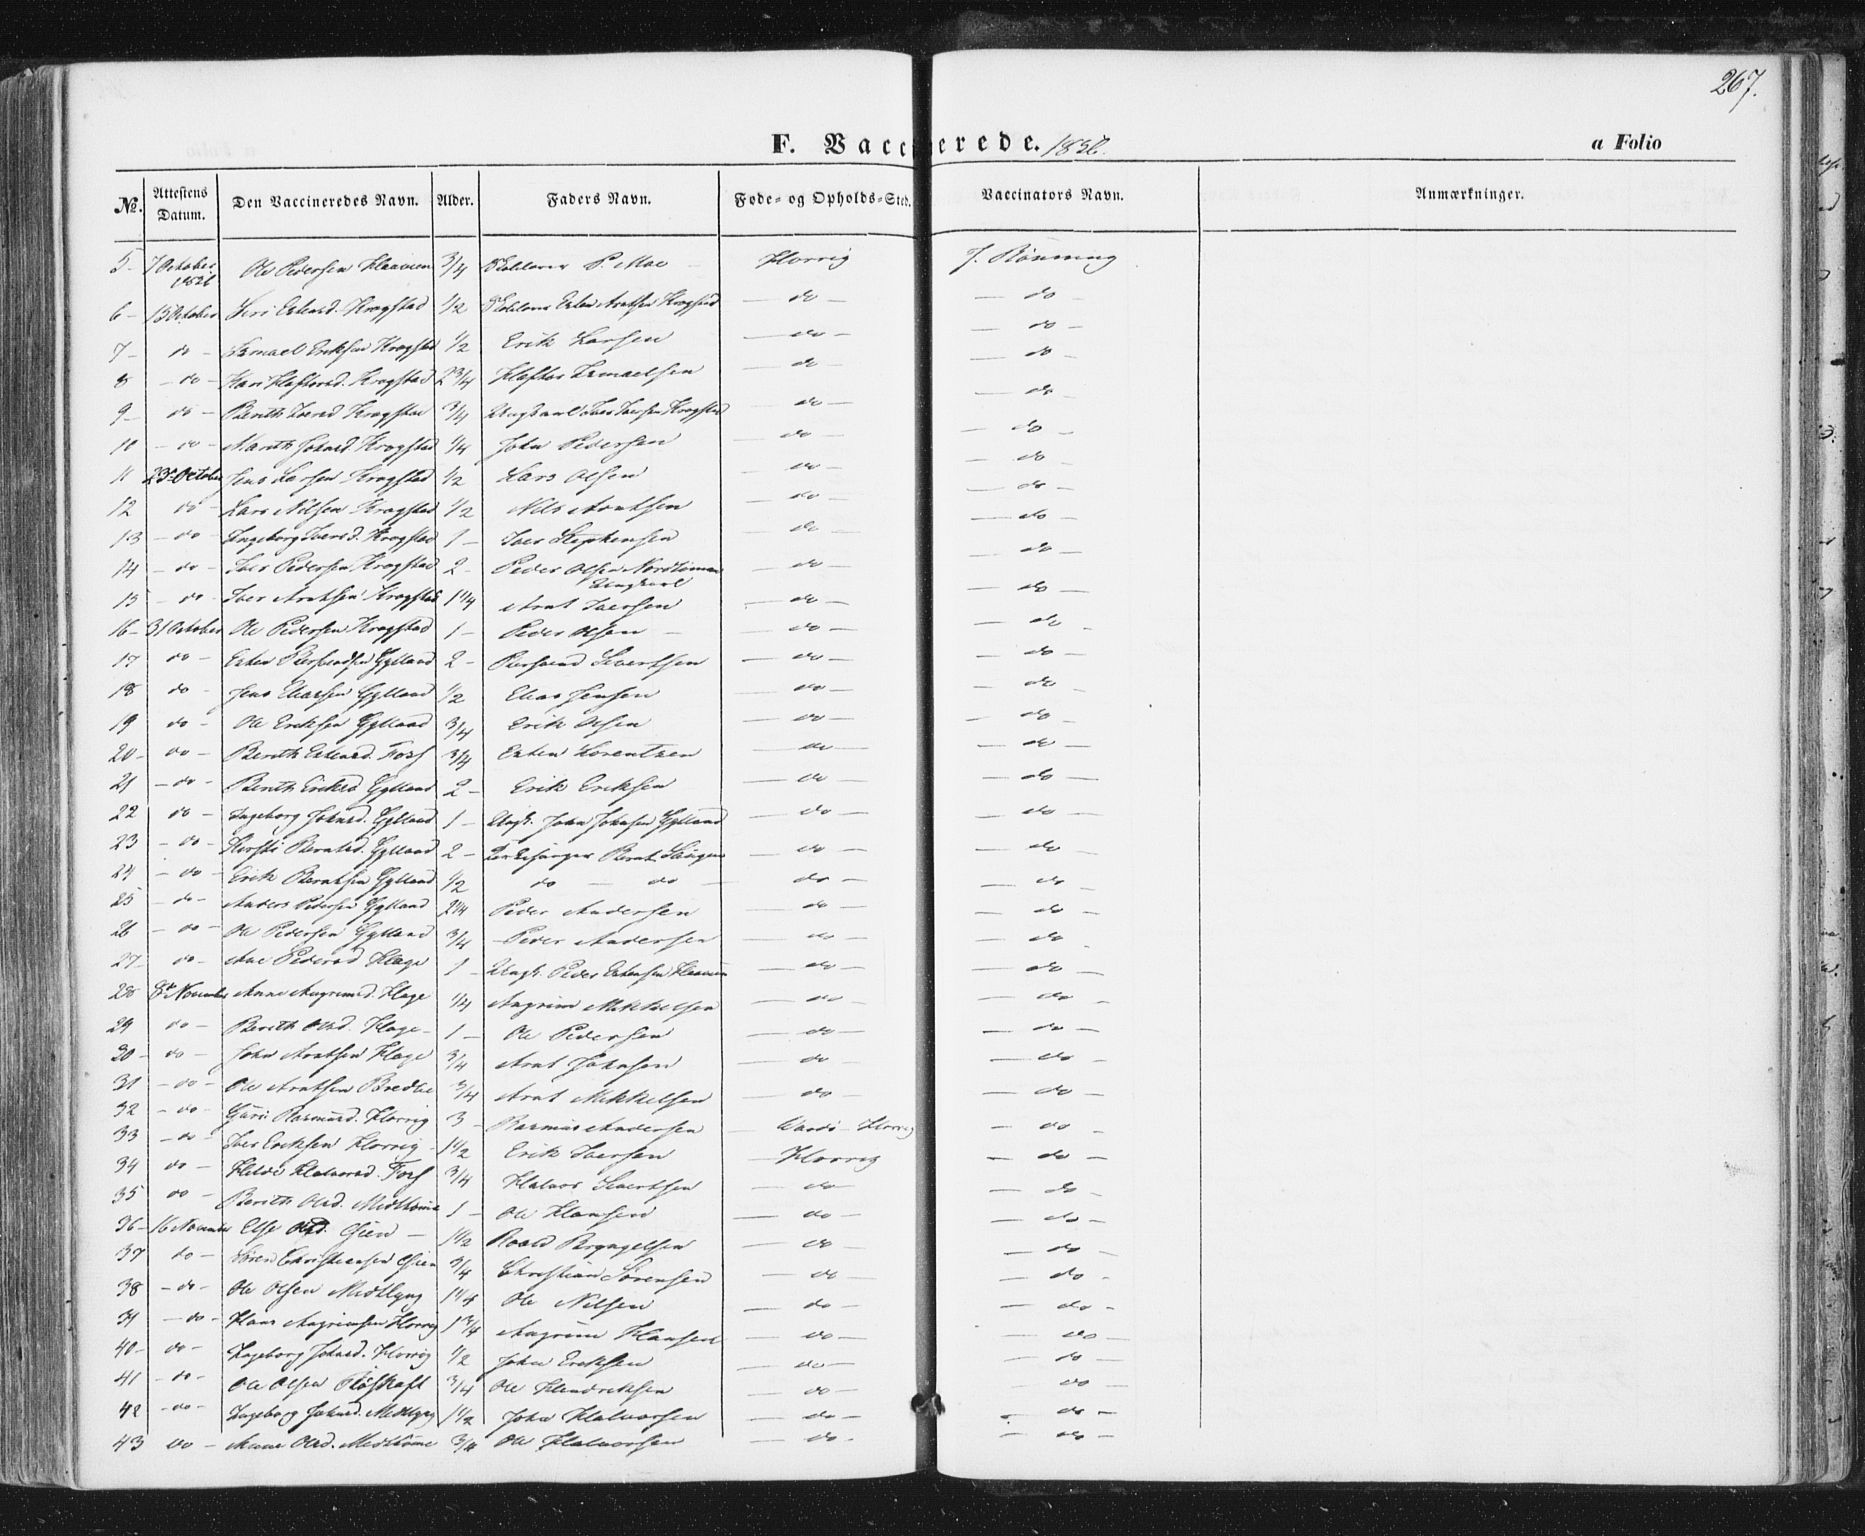 267.
F. Vaccinerede. 1856.
a Folio
No. Attestens Datum. Den Vaccineredes Navn. Alder. Faders Navn. Føde- og Opholds-Sted. Vaccinators Navn. Anmærkninger.
5 - 7 October Ole Pedersen 3/4 P. Moe Horrig J. Rönning
6 - 15 October Krogstad 1/2 Esten Arntsen Krogstad - do - - do -
7 - do - Ismael Eriksen Krogstad 1/2 Erik Larsen - do - - do -
8 - do - Kari Krogstad 2 3/4 Ismaelsen - do - - do
9 - do - Berith Iversd Krogstad 3/4 Ungkarl Iver Iversen Krogstad - do - - do -
10 - do - Marith Johnsd. Krogstad 1/4 John Pedersen - do - - do -
11 23d October Jens Larsen Krogstad 1/2 Lars Olsen - do - - do -
12 do - Lars Nilsen Krogstad 1/2 Nils Arntsen - do - - do -
13 - do Ingeborg Iversd. Krogstad 1 - Iver Stephensen - do - - do -
14 - do - Iver Pedersen Krogstad 2 - Peder Olsen - do - - do -
15 - do - Iver Arntsen Krogstad 1 1/4 Ungkarl Arnt Iversen - do - - do -
16 - 31 October Ole Pedersen Krogstad 1 - Peder Olsen - - do - - do -
17 do - Esten Gylland 2 - Sivertsen - do - - do -
18 do - Jens Eliasen Gylland 1/2 Elias Jensen - do - - do -
19 do - Ole Eriksen Gylland 3/4 Erik Olsen - do - - do -
20 - do - Berith Estensd. Fors 3/4 Esten Lorentzen - do - - do -
21 - do - Berith Eriksd Gylland 2 - Erik Eriksen - do - - do -
22 do - Ingeborg Johnsd. Gylland 1 - Ungk. John Johnsen Gylland - do - - do -
23 - do - Berntsd. Gylland 2 - Bernt - do - - do -
24 - do - Erik Berntsen Gylland 1/2 do - do - - do - - do
25 - do - Anders Pedersen Gylland 2 1/4 Peder Andersen - do - - do -
26 - do - Ole Pedersen Gylland 3/4 Peder Andersen - do - - do -
27 - do - Ane Pedersd Klage 1 - Ungk. Peder Estensen - do - - do -
28 8t November Anne Angrimsd. Klage 1/4 Angrim Mikkelsen - do - - do -
29 do - Berith Olsd. Klage - 1 - Ole Pedersen - do - - do -
30 - do - John Arntsen Klage 3/4 Arnt Johnsen - do - do -
31 - do - Ole Arntsen Bredlie 3/4 Arnt Mikkelsen - do - - do -
32 - do - Rasmusd. Horrig 3 - Rasmus Andersen - Horrig - do -
33 - do - Iver Eriksen Horrig - 1 1/2 Erik Iversen - Horrig - do -
34 do - Halvorsd. Fors 3/4 Halvor Sivertsen - do - - do -
35 do - Berith Olsd. 1 - Ole Hansen - do - - do -
36 - 16 November Else Olsd. - 1 1/2 Roald Bryngelsen - do - - do -
37 do - Sören Christiansen 3/4 Christian Sörensen - do - - do -
38 - do - Ole Olsen Midtlyng 1 1/4 Ole Nilsen - do - - do -
39 - do - Hans Angrimsen Horrig 1 3/4 Angrim Hansen - do - - do -
40 - do - Ingeborg Johnsd. Horrig 1/2 John Eriksen - do - - do -
41 - do - Ole Olsen 3/4 Ole Hendriksen - do - - do -
42 - do - Ingeborg Johnsd. Midtlyng 1 1/2 John Halvorsen - do - - do -
43 do - Olsd. 3/4 Ole Halvorsen - do - - do -